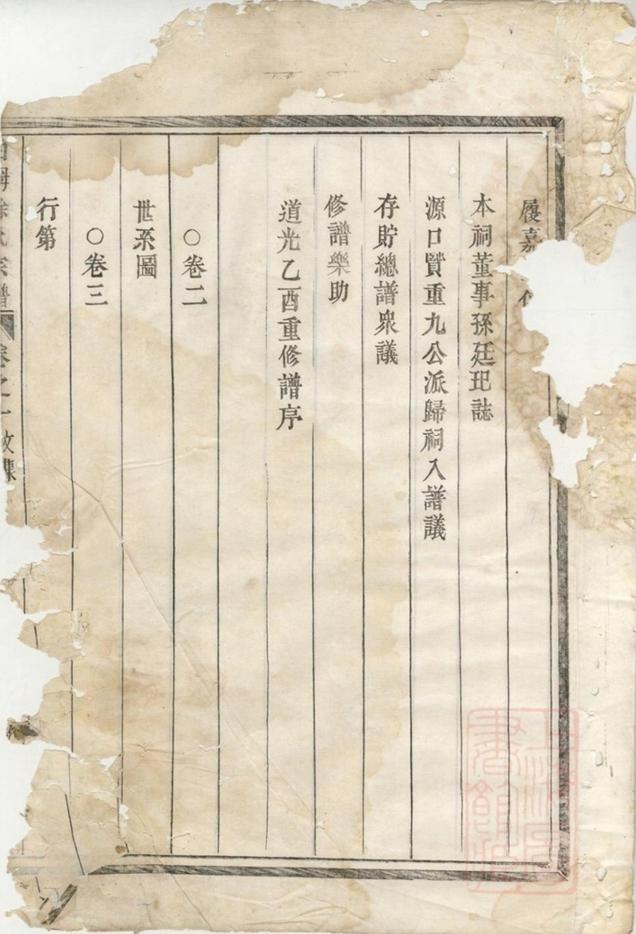 履嘉
本祠董事孫廷玘誌
源口贒重九公派歸祠入譜議
存貯總譜衆議
修譜樂助
道光乙酉重修譜序
○卷二
世系圖
○卷三
行第
徐氏宗譜 卷之一